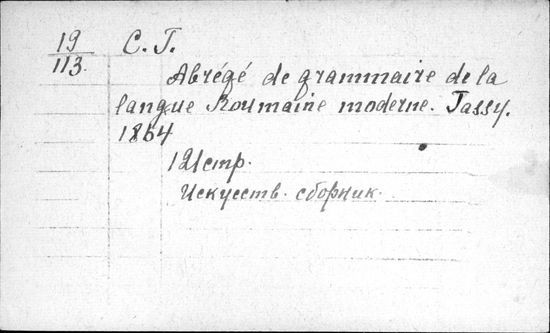 19
113.
C. T.
Abrégé de grammaire de la
langue Roumaine moderne. Jassy.
1864
121 стр.
Искусств. сборник.